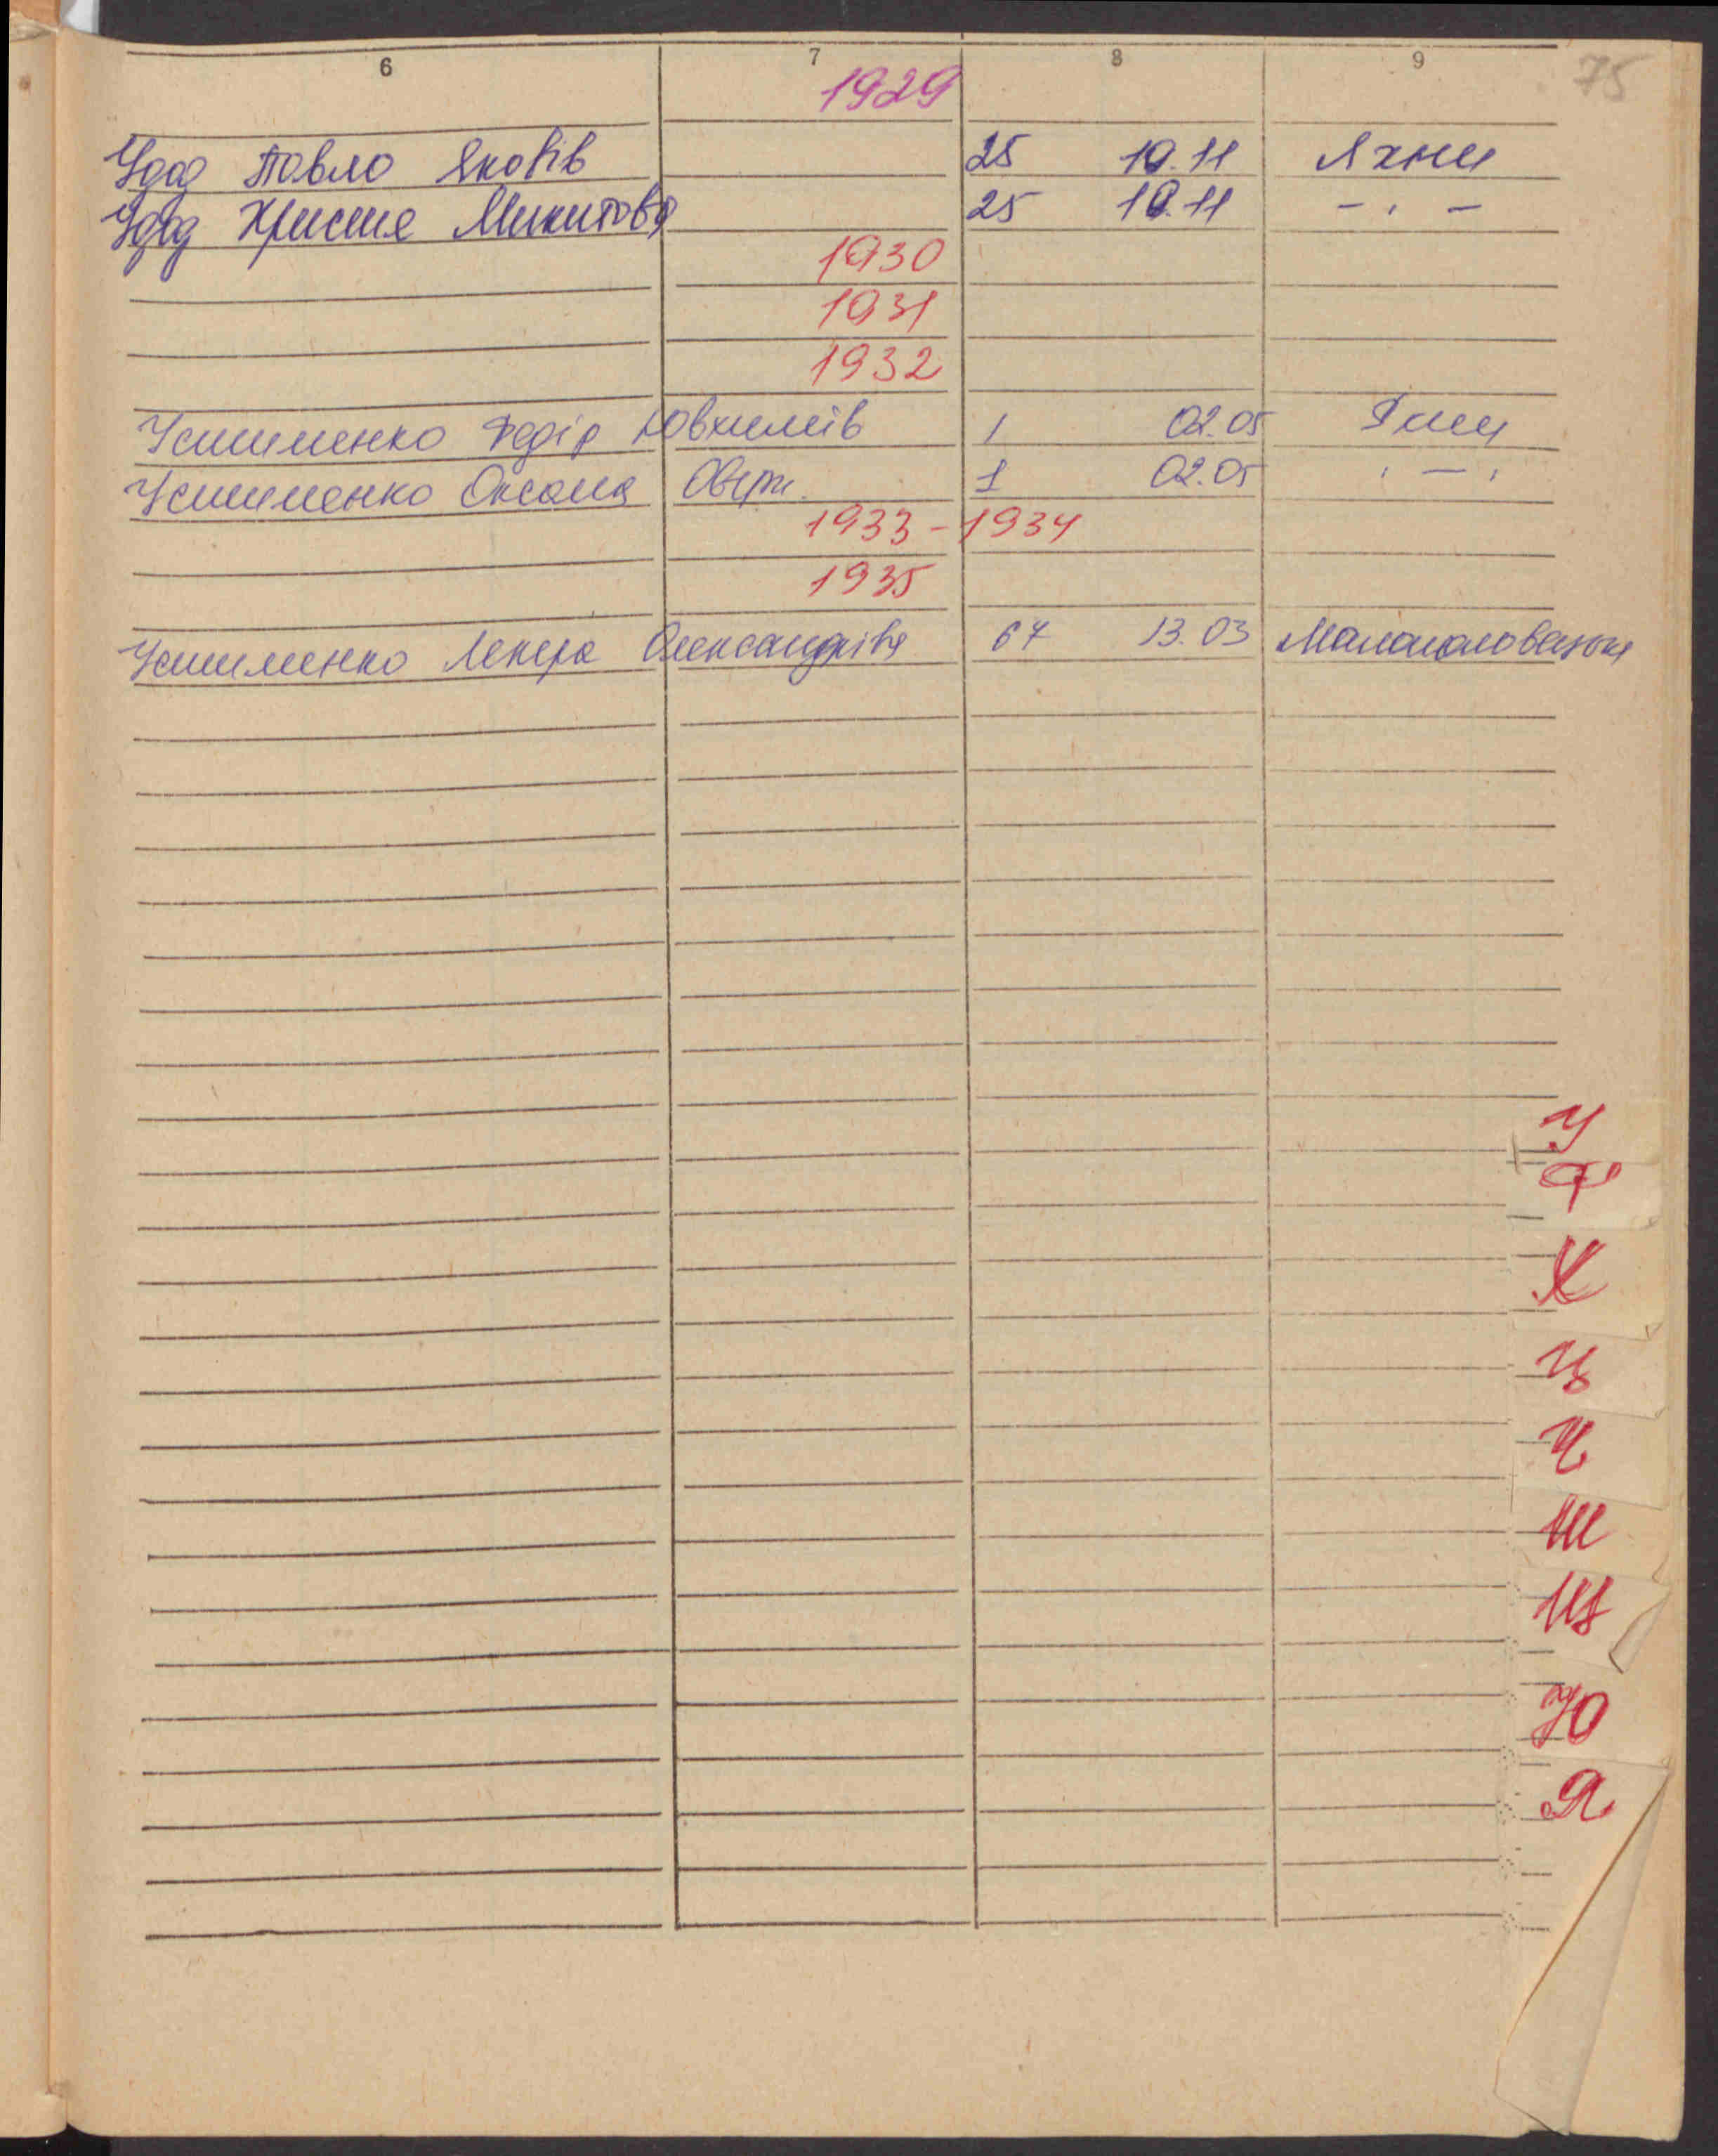 6 7 8 9 75
1929
Удод Павло Яковів 25 10.11 Яхни
Удод Христя Микитова 25 10.11 - " -
1930
1931
1932
Устименко Федір Ювхимів 1 02.05
Устименко Оксана 1 02.05 " - "
1933-1934
1935
Устименко Лекера Олександрівна 67 13.03
У
Ф
Х
Ц
Ч
Ш
Щ
Ю
Я